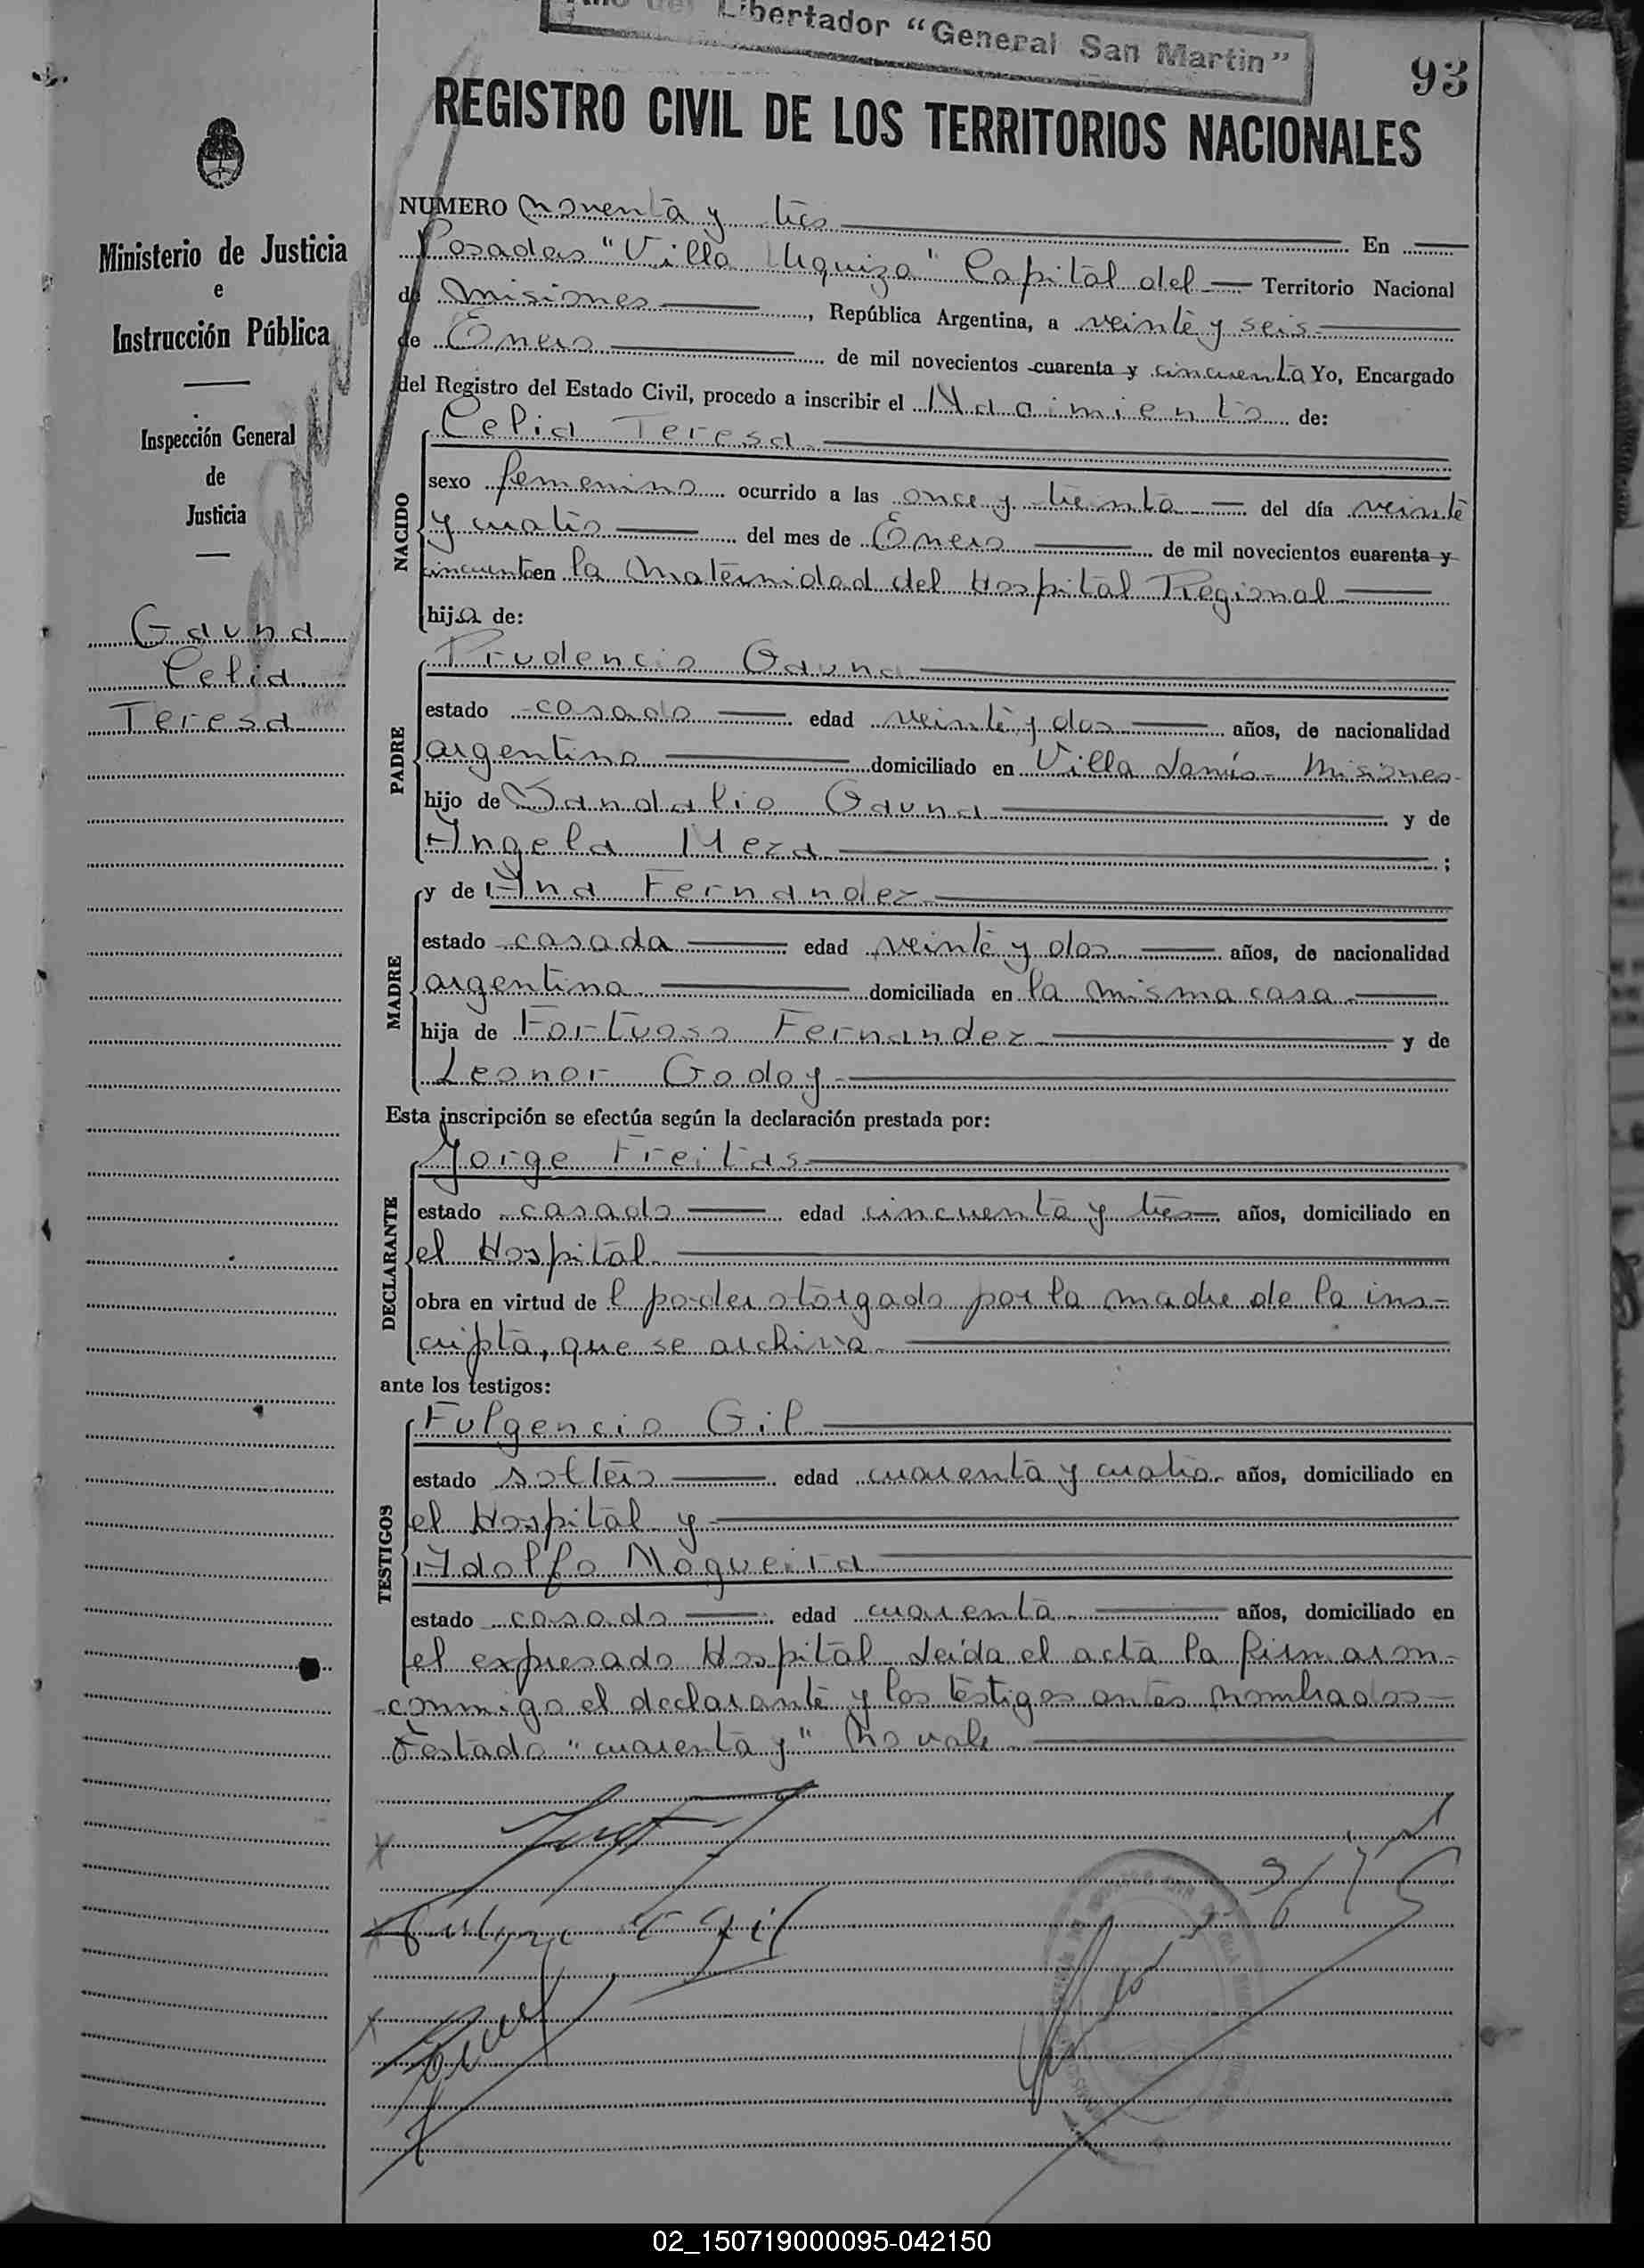 Libertador "General San Martin"
93
REGISTRO CIVIL DE LOS TERRITORIOS NACIONALES
Ministerio de Justicia
e
Instrucción Pública
Inspección General
de
Justicia
Gauna
Celia
Teresa
NUMERO noventa y tres En
Posadas "Villa Urquiza" Capital del Territorio Nacional
de Misiones, República Argentina, a veinte y seis
de Enero de mil novecientos cuarenta y cincuenta Yo, Encargado
del Registro del Estado Civil, procedo a inscribir el Nacimiento de:
Celia Teresa
NACIDO
sexo femenino ocurrido a las once y treinta del día veinte
y cuatro del mes de Enero de mil novecientos cuarenta y
cincuenta en la Maternidad del Hospital Regional
hija de:
Prudencio Gauna
PADRE
estado casado edad veinte y dos años, de nacionalidad
argentino domiciliado en Villa Lanús - Misiones
hijo de Gauna y de
Angela Meza ;
y de Ana Fernandez
MADRE
estado casada edad veinte y dos años, de nacionalidad
argentina domiciliada en la misma casa
hija de Fortuoso Fernandez y de
Leonor Godoy
Esta inscripción se efectúa según la declaración prestada por:
Jorge Freitas
DECLARANTE
estado casado edad cincuenta y tres años, domiciliado en
el Hospital
obra en virtud del poder otorgado por la madre de la ins-
cripta, que se archiva
ante los testigos:
Fulgencio Gil
TESTIGOS
estado soltero edad cuarenta y cuatro años, domiciliado en
el Hospital y
Adolfo Nogueira
estado casado edad cuarenta años, domiciliado en
el expresado Hospital Leída el acta la firmaron
conmigo el declarante y los testigos antes nombrados
Testado "cuarenta y" No vale
02_150719000095-042150